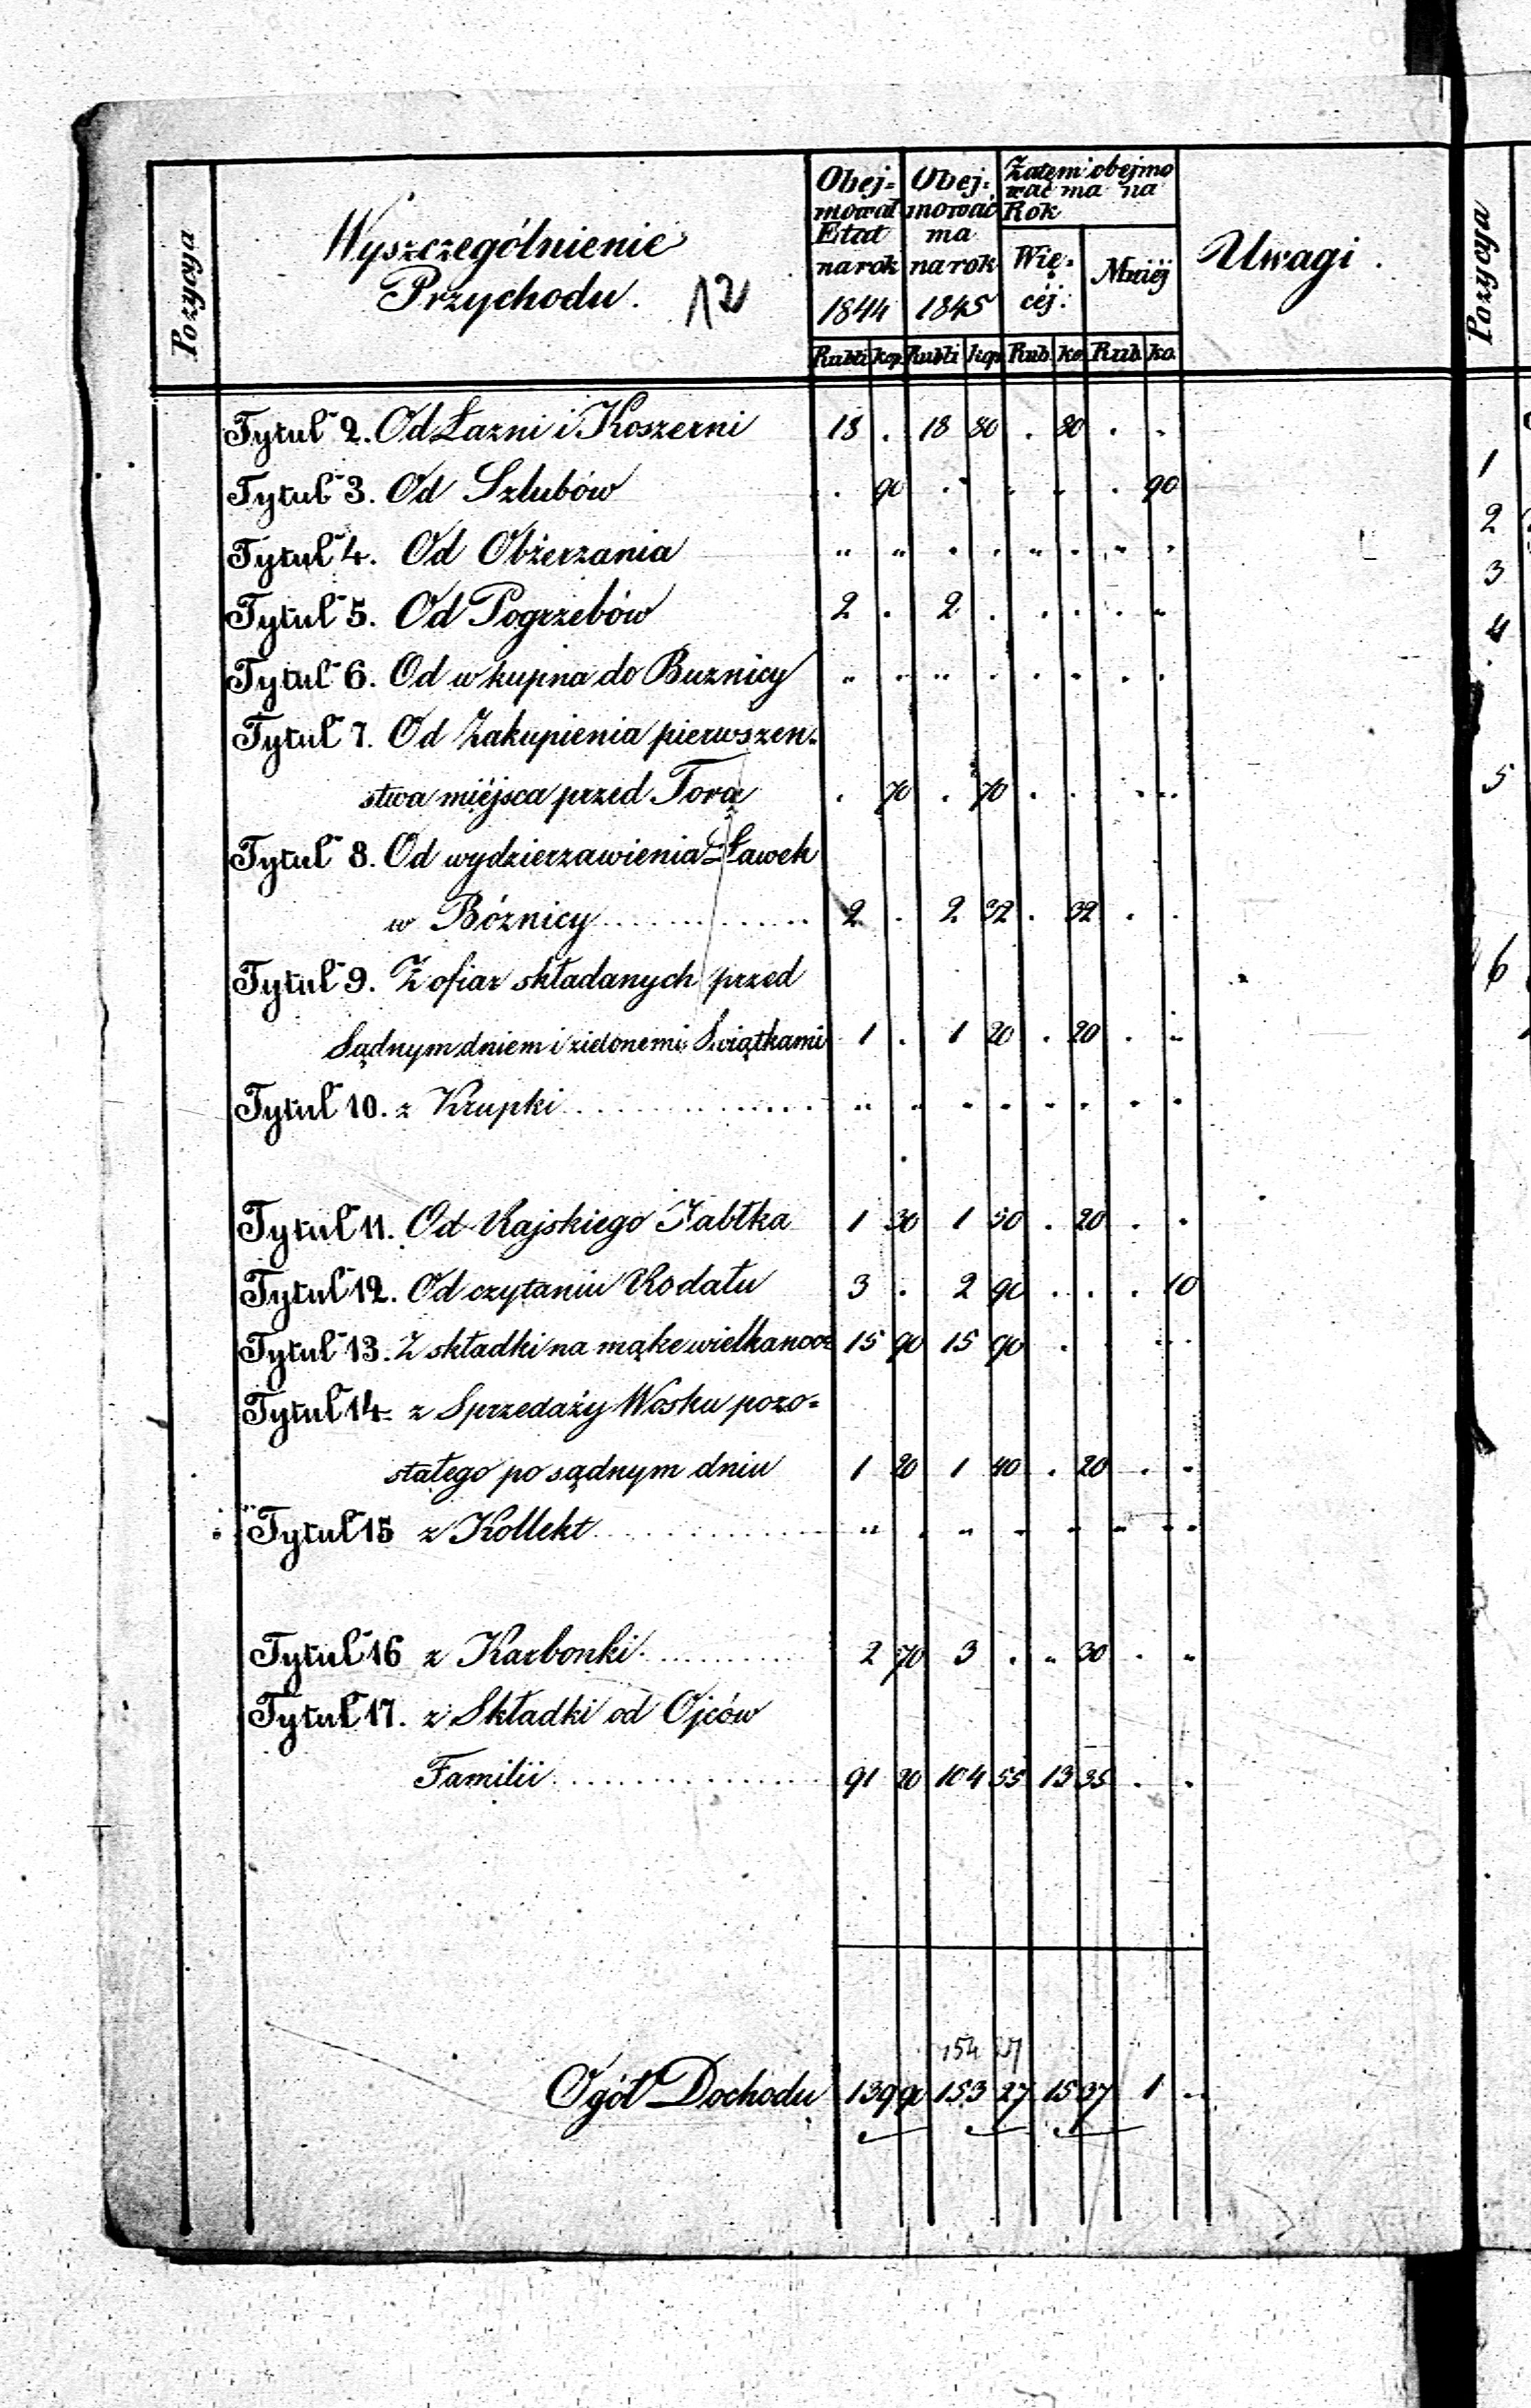 Pozycya
Wyszczególnienie
Przychodu. 12
Obej=
mował
Etat
na rok
1844
Obej=
mować
ma
na rok
1845
Zatem obejmo
wać ma na
Rok
Wię=
céj.
Mniéj
Uwagi.
Rubli kop. Rubli kop. Rub. ko. Rub. ko.
Tytuł 2. Od Łazni i Koszerni 18 . 18 80 . 80 . .
Tytuł 3. Od Szlubów . 90 . . . . . 90
Tytuł 4. Od Obżerzania " " . . " . " .
Tytuł 5. Od Pogrzebów 2 . 2 . . . . "
Tytuł 6. Od wkupna do Buznicy " . " . . . . .
Tytuł 7. Od Zakupienia pierwszen=
stwa miejsca przed Torą . 70 . 70 . . . .
Tytuł 8. Od wydzierzawienia Ławek
w Bóznicy 2 . 2 32 . 32 . .
Tytuł 9. Z ofiar składanych przed
Sądnym dniem i zielonemi Swiątkami 1 . 1 20 . 20 . "
Tytuł 10. z Krupki " . . . . . . .
Tytuł 11. Od Rajskiego Jabłka 1 30 1 50 . 20 . .
Tytuł 12. Od czytaniu Rodału 3 . 2 90 . . . 10
Tytuł 13. Z składki na mąke wielkanoc 15 90 15 90 . . . .
Tytuł 14. z Sprzedaży Wosku pozo=
stałego po sądnym dniu 1 20 1 40 . 20 . .
Tytuł 15 z Kollekt " . " . . " . .
Tytuł 16 z Karbonki 2 70 3 . " 30 . "
Tytuł 17. z Składki od Ojców
Familii 91 20 104 55 13 35 . .
154 27
Ogół Dochodu 139 90 153 27 15 37 1 "
Pozycya
1
2
3
4
5
6